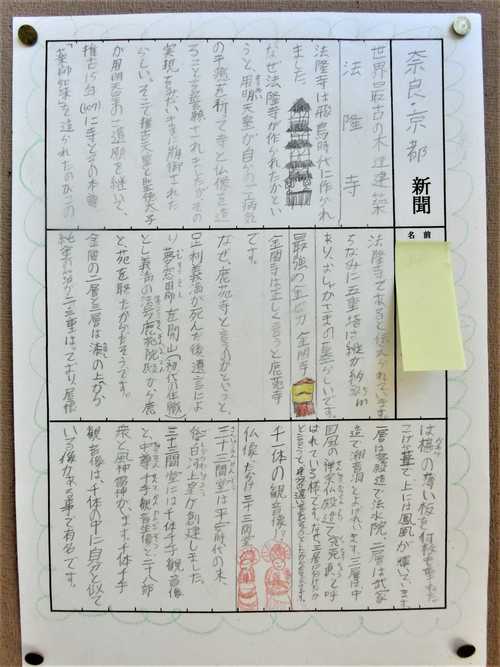 奈良・京都
新聞
名前
世界最古の木造建築
法隆寺
法隆寺は飛鳥時代に作られ
ました。
なぜ法隆寺が作られたかとい
うと、用明天皇が自らのご病気
の平癒を祈って寺と仏像を造
ることを誓願されましたがその
実現をみないままに崩御された
らしい。そこで推古天皇と聖徳太子
が用明天皇の遺願を継いで、
推古15年(607)に寺とその本尊
「薬師如来」を造られたのがこの
法隆寺であると伝えられています。
ちなみに五重塔に釈が納
最強の金の力 金閣寺
金閣寺は正しく言うと鹿苑寺
です。
なぜ、鹿苑寺と言うのかというと、
足利義満が死んだ後遺言によ
り、夢窓国師を開山(初代住職)
とし義満の法号鹿苑院殿から鹿
と苑を取ったからだそうです。
金閣の二層と三層は漆の上から
純金の箔が二重はってあり、屋根
は椹の薄い板を何枚も重ねた
こけら葺で上には鳳凰が輝いています。
一層は寝殿造で法水院、二層は武家
造で潮音洞とよばれています。三層は中
国風の禅宗仏殿造で究竟頂と呼
ばれている様です。
千一体の観音像!
仏像だらけ三十三間堂
三十三間堂は平安時代の末、
後白河上皇が創建しました。
三十三間堂には千体千手観音像
と、中尊千手観音坐像と二十八部
衆と風神雷神がいます。千体千手
観音像は、千体の中に自分と似て
いる像がある事で有名です。